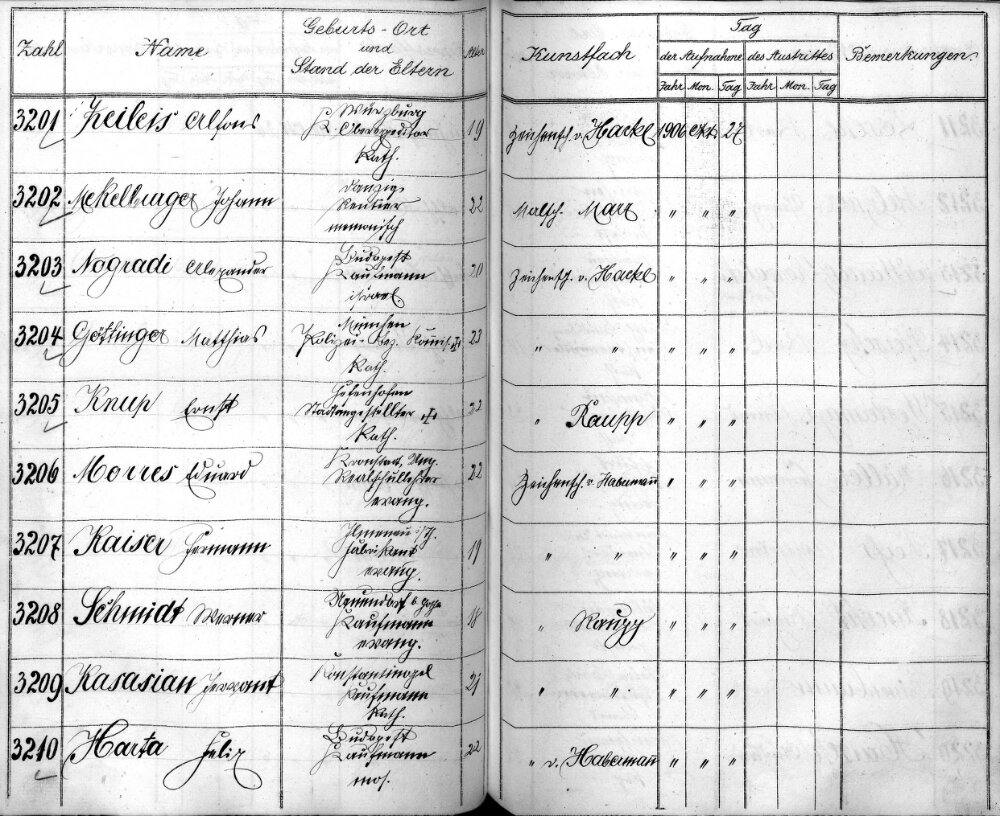 Zahl Name Geburts-Ort und Stand der Eltern Alter Kunstfach Tag der Aufnahme des Austrittes Bemerkungen.
Jahr Mon. Tag Jahr Mon. Tag
3201 Zeileis Alfons Würzburg 19 Zeichensch. v. Hackl 1906 Okt. 27
K. Oberexpeditor
Kath.
3202 Mekelburger Johann Danzig 22 Malsch. Marr " " "
Rentier
menonisch
3203 Nogradi Alexander Budapest 20 Zeichensch. v. Hackl " " "
Kaufmann
israel
3204 Göttinger Matthias München 23 " " " " "
Polizei-Bez. Komis. †
Kath.
3205 Knup Ernst 22 " Raupp " " "
Stadtangestellter †
Kath.
3206 Morres Eduard Kronstadt, Ung. 22 Zeichensch. v. Haberman " " "
Realschullehrer
evang.
3207 Kaiser Hermann Ilmenau i/Th. 19 " " " " "
Fabrikant
evang.
3208 Schmidt Werner Neuendorf b. 18 " Raupp " " "
Kaufmann
evang.
3209 Kasasian Jerwant Konstantinopel 21 " " " " "
Kaufmann
Kath.
3210 Harta Felix Budapest 22 " v. Haberman " " "
Kaufmann
mos.